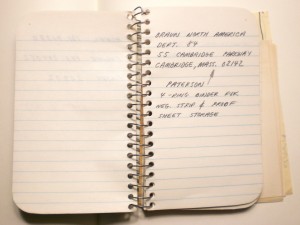 BRAUN NORTH AMERICA
DEPT. 89
55 CAMBRIDGE PARKWAY
CAMBRIDGE, MASS. 02142
PATERSON
4-RING BINDER FOR
NEG. STRIP & PROOF
SHEET STORAGE